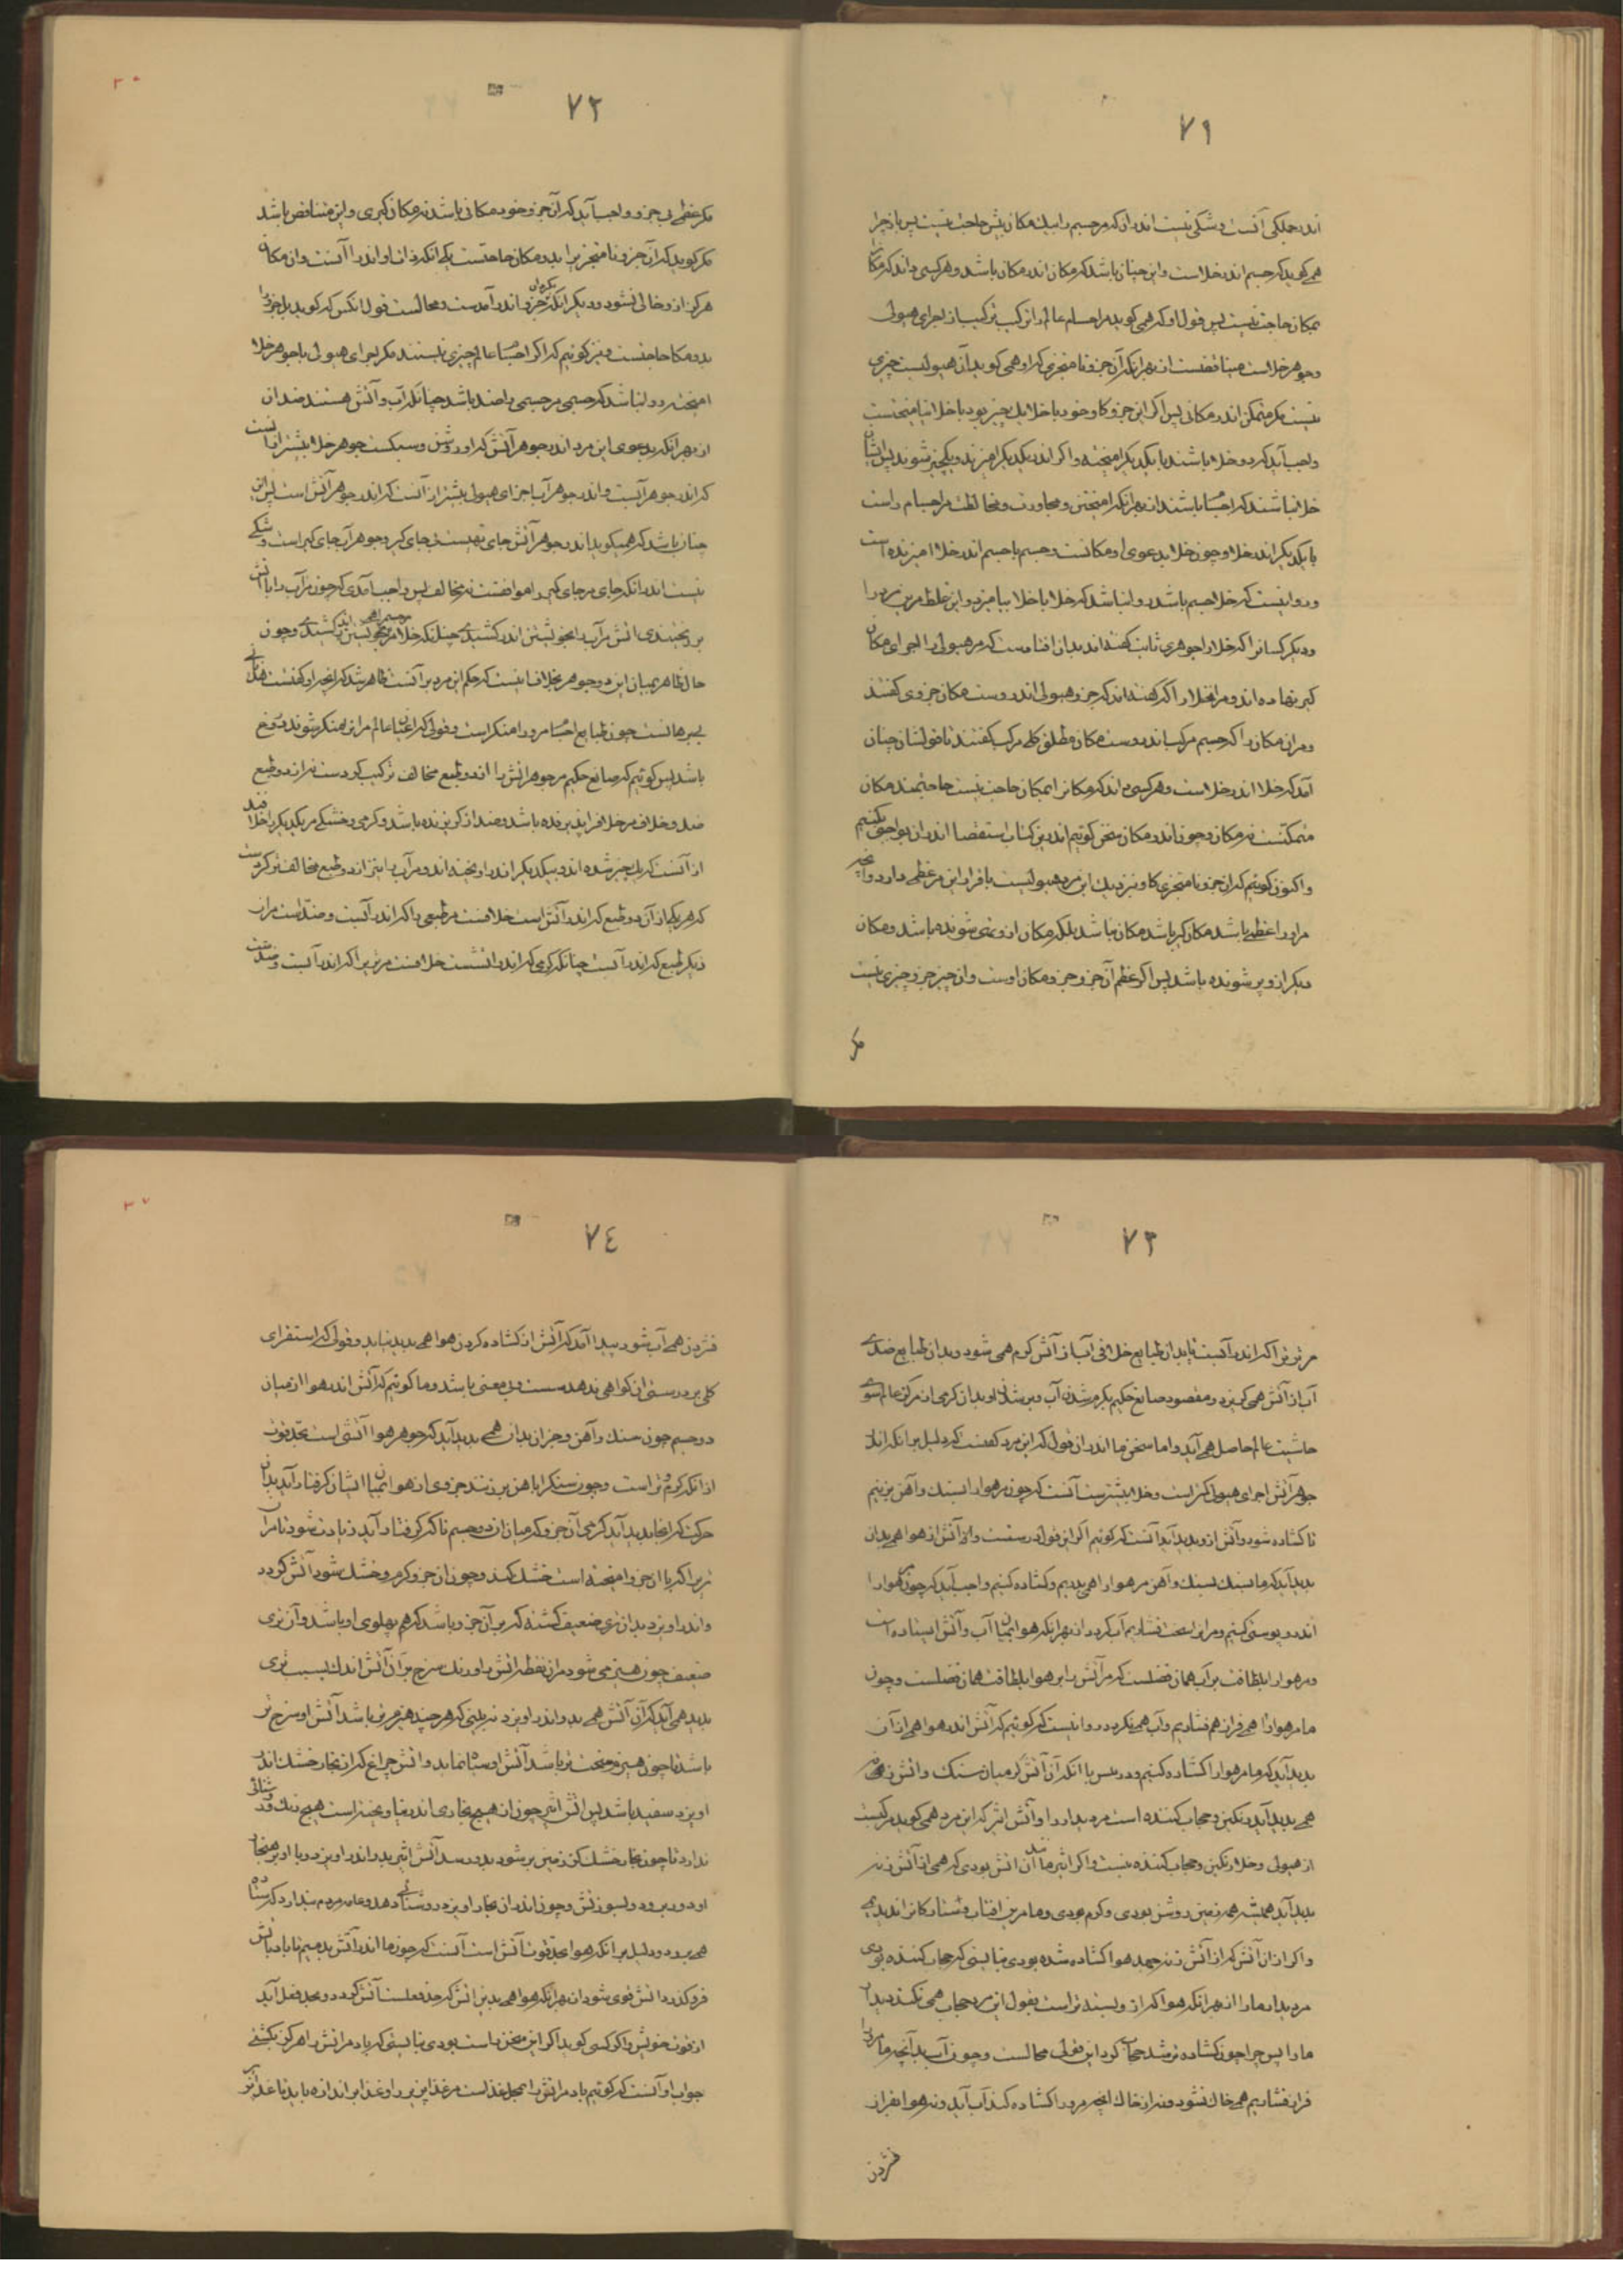 ۷۱
اندر جملگی آنست و شکی نیست اندر آن که مر جسم را بیک مکان بیش حاجت نیست پس باز چرا
همی گوید که جسم اندر خلاست و این چنان باشد که مکان اندر مکان باشد و هر کسی داند که مکان را
بمکان حاجت نیست پس قول او که همی گوید مر اجسام عالم را ترکیب ترکیب از اجزای هیولی
و جوهر خلاست متناقضست از بهر آنکه آن جزو نامتجزی که او همی گوید آن هیولیست چیزی
نیست مگر متمکن اندر مکانی پس اگر این جزو کاو خود با خلا یک چیز بود با خلا نیامیختست
واجب آید که دو خلا باشند با یکدیگر آمیخته و اگر اندر یکدیگر آمیزند و یک چیز شوند پس ایشان
خلا نباشند که اجسام باشند از بهر آنکه آمیختن و مجاورت و مخالطت مر اجسام راست
با یکدیگر اندر خلا و چون خلا بدعوی او مکانست و جسم با جسم اندر خلا آمیزنده است
و روا نیست که خلا جسم باشد روا نباشد که خلا با خلا بیامیزد و این غلط مرین مرد را
و دیگر کسانرا که خلا را جوهری ثابت گفته‌اند بدان افتادست که مر هیولی را اجزای مکان
گیر نهاده‌اند و مر آن خلا را که گفته‌اند که جزو هیولی اندروست مکان جزوی گفتند
و مر آن مکان را که جسم مرکب اندروست مکان مطلق کلی مرکب گفتند تا قولشان چنان
آمد که خلا اندر خلاست و هر کسی داند که مکانرا بمکان حاجت نیست حاجتمند مکان
متمکنست نه مکان و چون اندر مکان سخن گوئیم اندرین کتاب استقصا اندر آن بواجبی بکنیم
و اکنون گوئیم که آن جزو نامتجزی کاو نزدیک این مرد هیولیست باقرار این مر عظمی دارد و آنچه
مر او را عظمی باشد مکان گیر باشد مکان نباشد بلکه مکان ازو تهی شونده باشد و مکان
دیگر ازو پر شونده باشد پس اگر عظم آن جزو جزو مکان اوست و آن چیز جز و چیزی نیست
مگر
۷۲
مگر عظمی بی جزو واجب آید که آن جزو خود مکانی باشد نه مکان گیری و این متناقض باشد
مگر گوید که آن جزو نامتجزی را بدو مکان حاجتست یکی آنکه ذات او اندر آنست و آن مکان
هرگز ازو خالی نشود و دیگر آنکه جزو اندر آمدست و محالست قول آنکس که گوید یک جزو را
بدو مکان حاجتست و نیز گوئیم که اگر اجسام عالم چیزی نیستند مگر اجزای هیولی با جوهر خلا
آمیخته روا نباشد که جسمی مر جسمی را ضد باشد چنانکه آب و آتش هستند ضدان
از بهر آنکه بدعوی این مرد اندر جوهر آتش که او روشن و سبکست جوهر خلا بیشتر از آنست
که اندر جوهر آبست و اندر جوهر آب اجزای هیولی بیشتر از آنست که اندر جوهر آتش است پس این
چنان باشد که همیگوید اندر جوهر آتش جای تهیست بی‌جای گیر و جوهر آب جای گیر است و شکی
نیست اندر آنکه جای مر جای گیر را موافقست نه مخالف پس واجب آمدی که چون مر آب را با آتش
بر نختندی آتش مر آب را بخویشتن اندر کشیدی چنانکه خلا مر جسم را همی بخویشتن اندر کشیدی و چون
حال ظاهر میان این دو جوهر بخلاف اینست که حکم این مرد بر آنست ظاهر شد که آنچه او گفتست هذیانی
بی‌برهانست چون طبایع اجسام مرو را منکر است و قولی که اعیان عالم مر آن را منکر شوند دروغ
باشد پس گوئیم که صانع حکیم مر جوهر آتش را از دو طبع مخالف ترکیب کردست نه از دو طبع
ضد و خلاف مر خلاف را پذیرنده باشد و ضد از ضد گریزنده باشد و گرمی و خشکی مر یکدیگر را خلاف
از آنست که یک چیز شده‌اند و بیکدیگر اندر آویخته‌اند و مر آب را نیز از دو طبع مخالف ترکیب کردست
که هر یکی از آن دو طبع که اندر آتش است خلافست مر طبعی را که اندر آبست و ضد است مر آن
دیگر طبع که اندر آبست چنانکه گرمی که اندر آتشست خلافست مر تری را که اندر آبست و ضدست
۷۳
مر تری را که اندر آبست تا بدان طبایع خلافی آب از آتش گرم همی شود و بدان طبایع ضدی
آب از آتش همی گریزد و مقصود صانع حکیم بگرم شدن آب و بر شدن او بدان گرمی از مرکز عالم سوی
حاشیت عالم حاصل همی آید و اما سخن ما اندر آن قول که این مرد گفتست که دلیل بر آنکه اندر
جوهر آتش اجزای هیولی کمتر است و خلا بیشترست آنست که چون مر هوا را بسنگ و آهن بزنیم
تا گشاده شود و آتش ازو پدید آید آنست که گوئیم اگر این قول درستست و آن آتش از هوا همی بدان
پدید آید که ما بسنگ بسنگ و آهن مر هوا را همی بدریم و گشاده کنیم واجب آید که چون هوا را
اندر پوستی کنیم و مر آن را سخت بفشاریم آب گردد از بهر آنکه هوا میان آب و آتش ایستاده است
و مر هوا را بلطافت بر آب همان فضلست که مر آتش را بر هوا بلطافت همان فضلست و چون
ما مر هوا را همی فراز هم فشاریم و آب همی نگردد روا نیست که گوئیم که آتش اندر هوا همی از آن
پدید آید که ما مر هوا را گشاده کنیم و درست با آنکه آن آتش کز میان سنگ و آتش زنه همی
همی پدید آید رنگین و حجاب کننده است مر دیدار را و آتش اثیر که این مرد همی گوید مرکبست
از هیولی و خلا رنگین و حجاب کننده نیست و اگر اثیر مانند آن آتش بودی که همی از آتش زنه
پدید آید همیشه همه زمین روشن بودی و گرم بودی و ما مرین آفتاب و ستارگانرا ندیدیمی
و اگر از آن آتش که از آتش زنه جهد هوا گشاده شده بودی نبایستی که حجاب کننده بودی
مر دیدار ما را از بهر آنکه هوا که ازو بسته‌تر است بقول این مرد حجاب همی نکند دیدار
ما را پس چرا چون گشاده‌تر شد حجاب کرد این قولی محالست و چون آب را بد آنچه ما مر او را
فراز فشاریم همی خاک نشود و نه از خاک بدانچه مرو را گشاده کند آب آید و نه هوا بفراز
فشردن
۷۴
فشردن همی آب شود پیدا آمد که آتش از گشاده کردن هوا همی پدید نیاید و قولی که استقرای
کلی بر درستی آن گواهی ندهد سست و بی معنی باشد و ما گوئیم که آتش اندر هوا از میان
دو جسم چون سنگ و آهن و جز آن بدان همی پدید آید که جوهر هوا آتشی است بحد قوت
از آنکه گرم و تر است و چون سنگ را باهن بر زنند جزوی از هوا میان ایشان گرفتار آید بدان
حرکت که آنجا پدید آید گرمی آن جزو که میان آن دو جسم ناگه گرفتار آید زیادت شود تا مر آن
تری را که با آن جزو آمیخته است خشک کند و چون آن جزو گرم و خشک شود آتش گردد
و اندر آویزد بدان تری ضعیف گشته که بر آن جزو باشد که هم پهلوی او باشد و آن تری
ضعیف چون هیزمی شود مر آن نقطه آتش را و رنگ سرخ مر آن آتش اندک بسبب تری
پدید همی آید که آن آتش همی بدو اندر آویزد نه بینی که هر چند هیزم تر باشد آتش او سرخ تر
باشد تا چون هیزم سخت تر باشد آتش او سیاه نماید و آتش چراغ که از بخار خشک اندر
آویزد سفید باشد پس آتش اثیر چون از هیچ بخاری اندر نیاویخته است هیچ رنگ و روشنائی
ندارد تا چون بخار خشک کز زمین بر شود بدو رسد آتش اثیر بدو اندر آویزد و با او بر هنجار
او دور برود و بسوزدش و چون اندر آن بخار آویزد روشنائی دهد و عامه مردم پندارد که ستاره
همی برود و دلیل بر آنکه هوا بحد قوت آتش است آنست که چون ما اندر آتش بدمیم تا باد بآتش
فرو گذرد آتش قوی شود از بهر آنکه هوا همی بدین آتش که بحد فعلست آتش گردد و بحد فعل آید
از قوت خویش و اگر کسی گوید اگر این سخن راست بودی نبایستی که باد مر آتش را هرگز بکشتی
جواب او آنست که گوئیم باد مر آتش را بمحل غذاست مر غذا پذیر را و غذا بر اندازه باید تا غذا پذیر